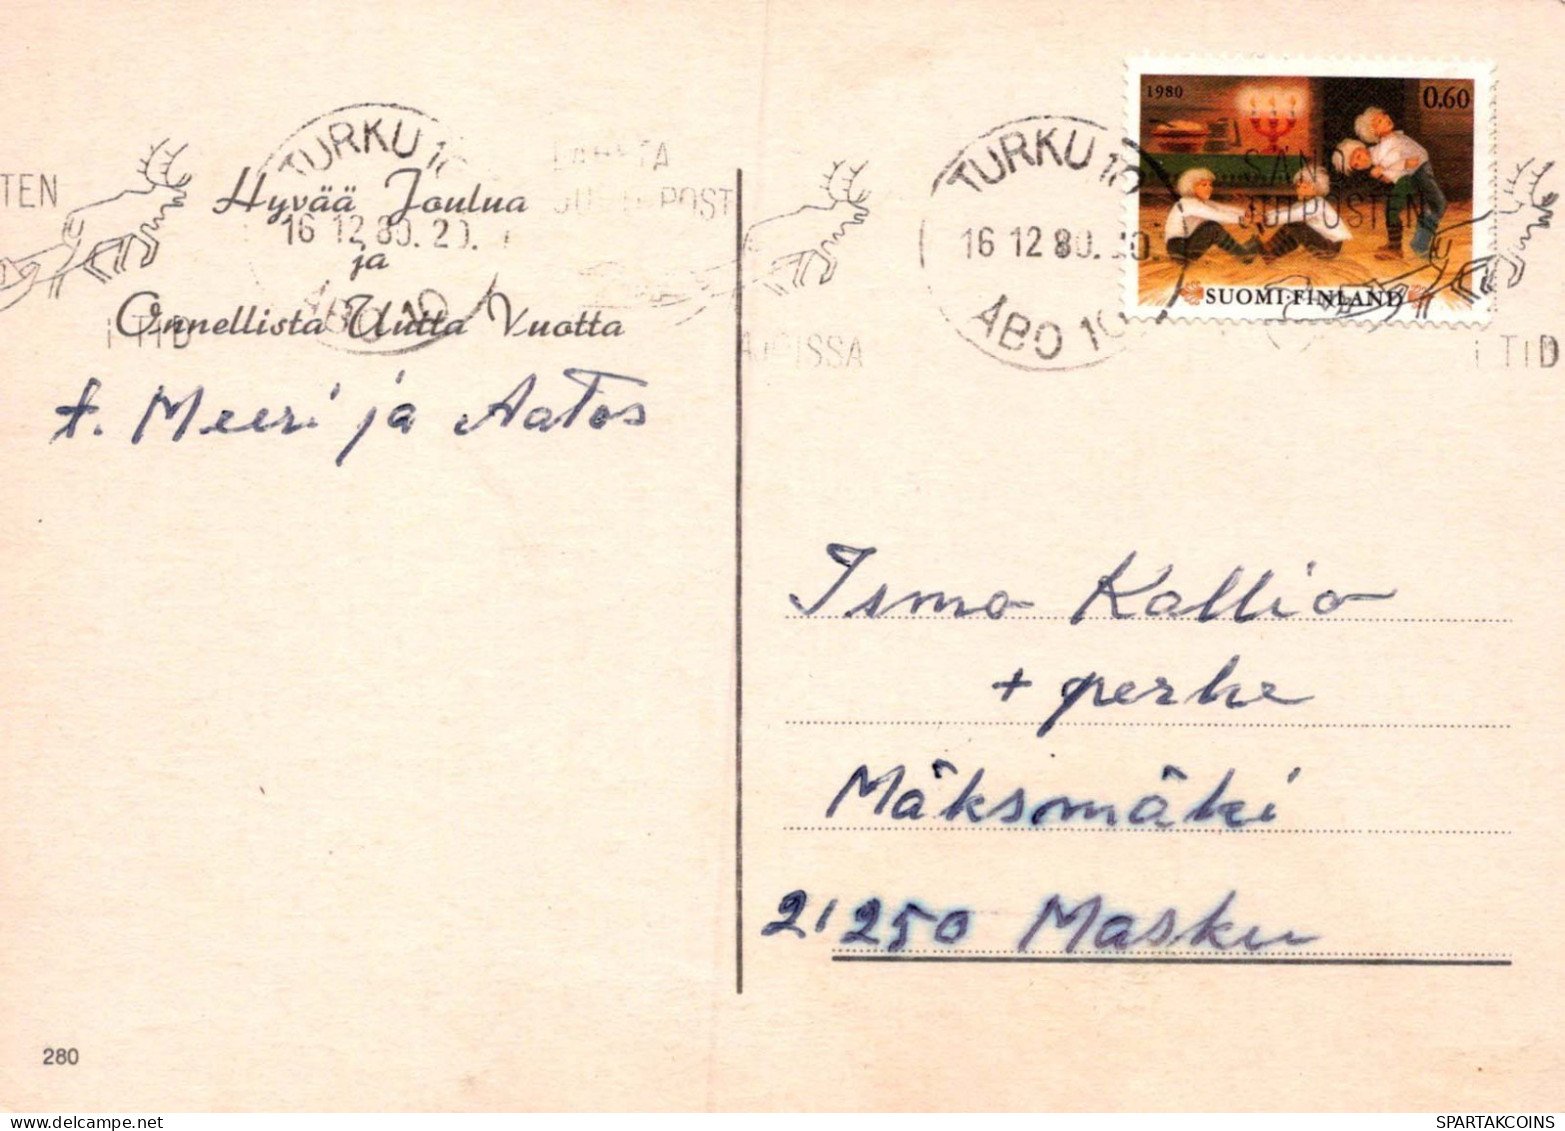 Hyvää Joulua
ja
Onnellista Uutta Vuotta
t. Meeri ja Aatos
280
TURKU 10
16 12 80. 20.
ÅBO 10
TEN
i TiD
POST
AJOISSA
TURKU 10
16 12 80.
ÅBO 10
1980
0.60
JULPOSTEN
SUOMI·FINLAND
i TiD
Ismo Kallio
+ perhe
Mäksmäki
21250 Masku
SPARTAKCOINS